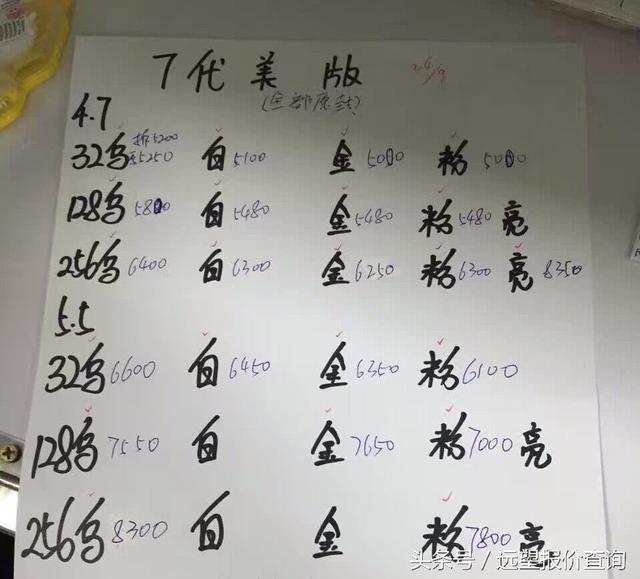 7代美版 24/9
(全部原封)
4.7
拆5200
32乌 至5250 白5100 金5000 粉5000
128乌5800 白5480 金5480 粉5480 亮
256乌6400 白6300 金6250 粉6300 亮8350
5.5
32乌6600 白6450 金6350 粉6100
128乌7550 白 金7650 粉7000 亮
256乌8300 白 金 粉7800 亮
头条号/远望报价查询